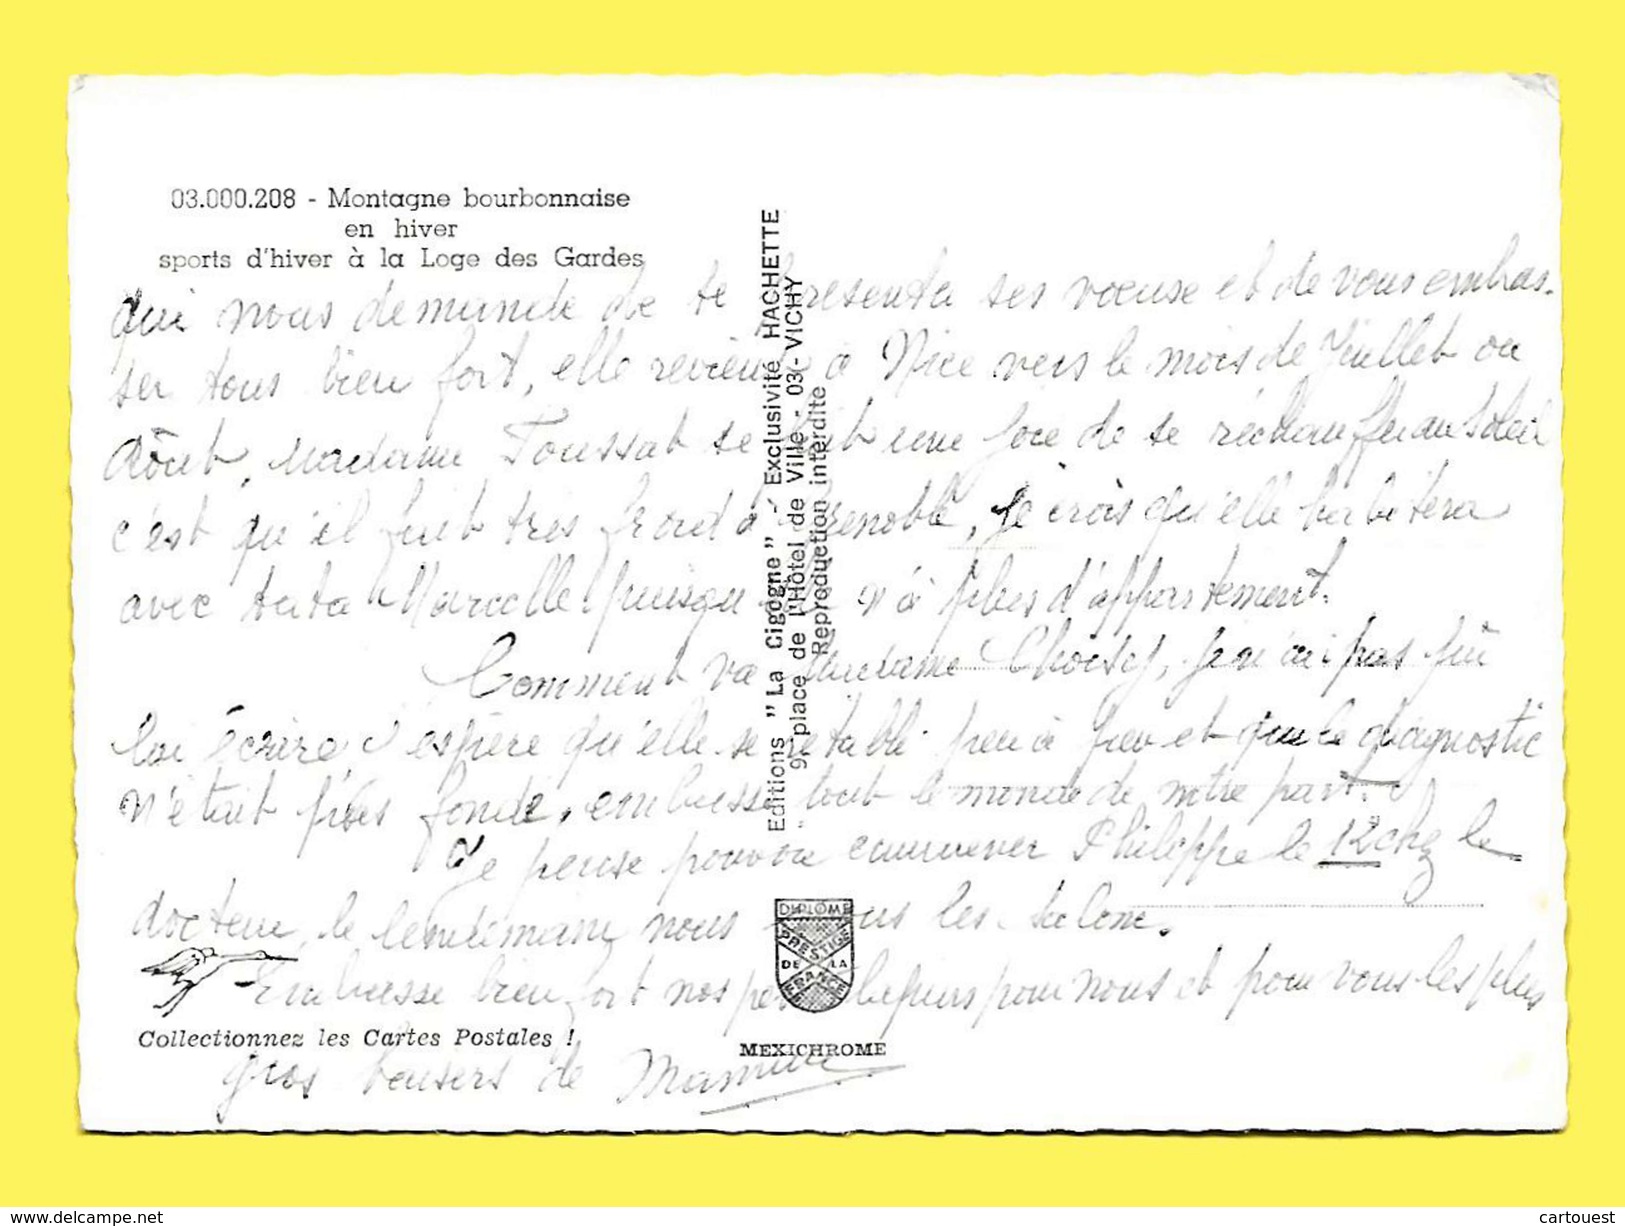 03.000.208 - Montagne bourbonnaise
en hiver
sports d'hiver à la Loge des Gardes
qui nous demande de te présenter ses voeux et de vous embras-
ser tous bien fort, elle revient à Nice vers le mois de Juillet ou
Août, Madame Toussat se fait une joie de se réchauffer au Soleil
c'est qu'il fait très froid à Grenoble, je crois qu'elle habitera
avec tata Marcelle puisqu'elle n'a plus d'appartement.
Comment va Madame Choisy, Je n'ai pas pû
lui écrire J'espère qu'elle se rétabli peu à peu et que le diagnostic
n'était pas fondé, embrasse tout le monde de notre part.
Je pense pouvoir emmener Philippe le 12 chez le
docteur, le lendemain nous les
Embrasse bien fort nos pour nous et pour vous les plus
gros baisers de
Editions "La Cigogne" - Exclusivité HACHETTE
9, place de l'Hôtel de Ville - 03 - VICHY
Reproduction interdite
DIPLOME
PRESTIGE
DE LA
FRANCE
MEXICHROME
Collectionnez les Cartes Postales !
www.delcampe.net
cartouest